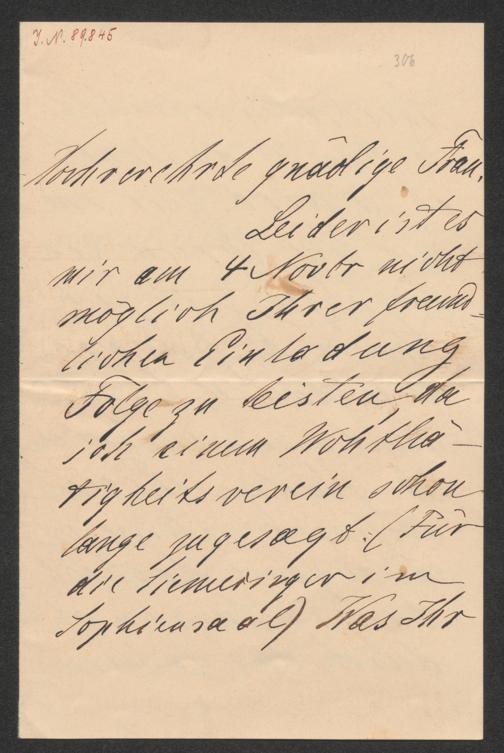 I.N. 89.845
306
Hochverehrte gnädige Frau,
Leider ist es
mir am 4 Novbr nicht
möglich Ihrer freund=
lichen Einladung
Folge zu leisten, da
ich einem Wohlthä-
tigkeitsverein schon
lange zugesagt. (Für
die Simeringer im
Sophiensaal) Was Ihr